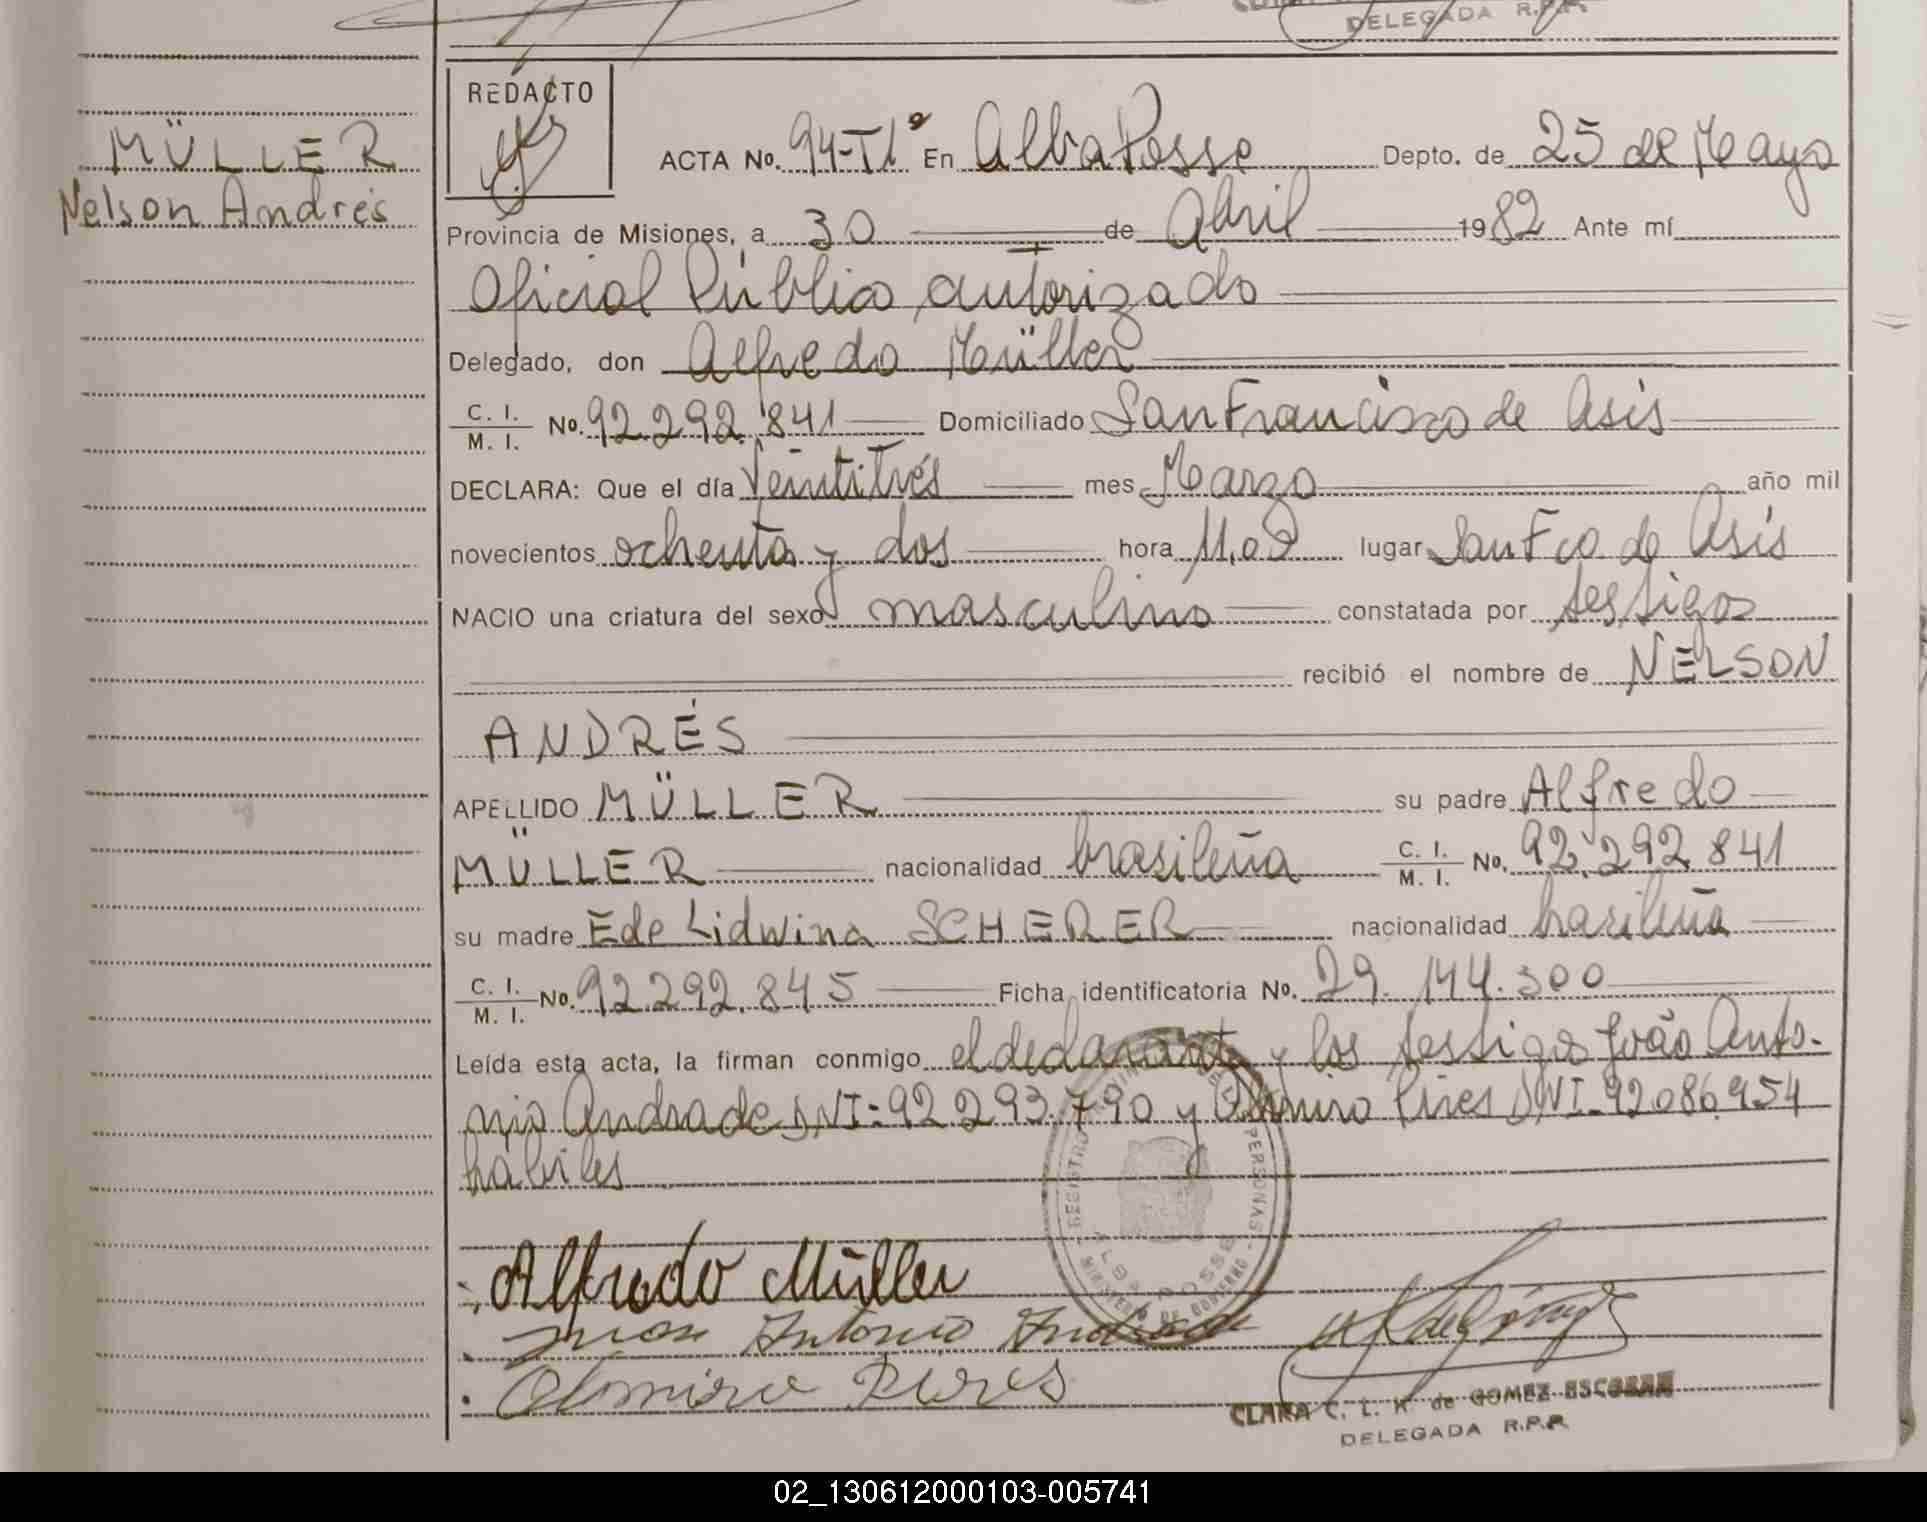 DELEGADA R.P.P.
MÜLLER
Nelson Andrés
REDACTO
ACTA No. 94-TIº En Alba Posse Depto. de 25 de Mayo
Provincia de Misiones, a 30 de Abril 1982 Ante mí
Oficial Público autorizado
Delegado, don Alfredo Müller
C. I. / M. I. No. 92.292.841 Domiciliado San Francisco de Asís
DECLARA: Que el día Veintitrés mes Marzo año mil
novecientos ochenta y dos hora 11,02 lugar San Fco. de Asís
NACIO una criatura del sexo masculino constatada por testigos
recibió el nombre de NELSON
ANDRÉS
APELLIDO MÜLLER su padre Alfredo
MÜLLER nacionalidad brasileña C. I. / M. I. No. 92.292.841
su madre Ede Lidwina SCHERER nacionalidad brasileña
C. I. / M. I. No. 92.292.845 Ficha identificatoria No. 29.144.300
Leída esta acta, la firman conmigo el declarante y los testigos João Anto-
nio Andrade DNI-92.293.790 y Olmiro Pires DNI-92086.954
hábiles
REGISTRO PERSONAS
ALBA POSSE
MINISTERIO DE GOBIERNO
Alfredo Müller
Antonio Andrade
Olmiro Pires
CLARA C. L. K. de GOMEZ ESCOBAR
DELEGADA R.P.P.
02_130612000103-005741